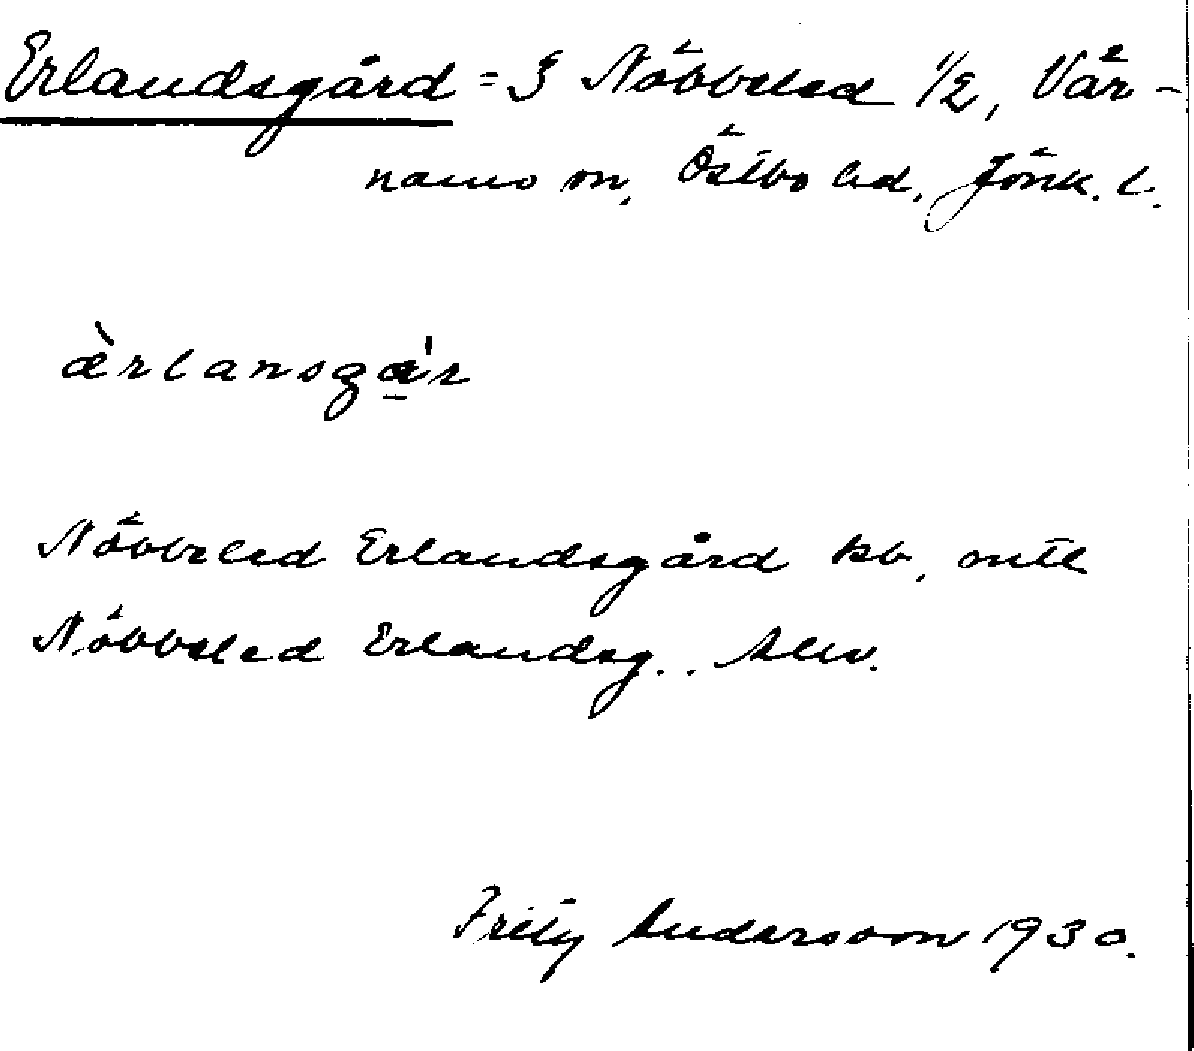 Erlandsgård = i Nöbbeled 1/2, Vär-
namo sn, Östbo hd, Jönk. l.
ærlansgar
Nöbbeled Erlandsgård kb,
Nöbbeled Erlandsg..
Fritz Andersson 1930.